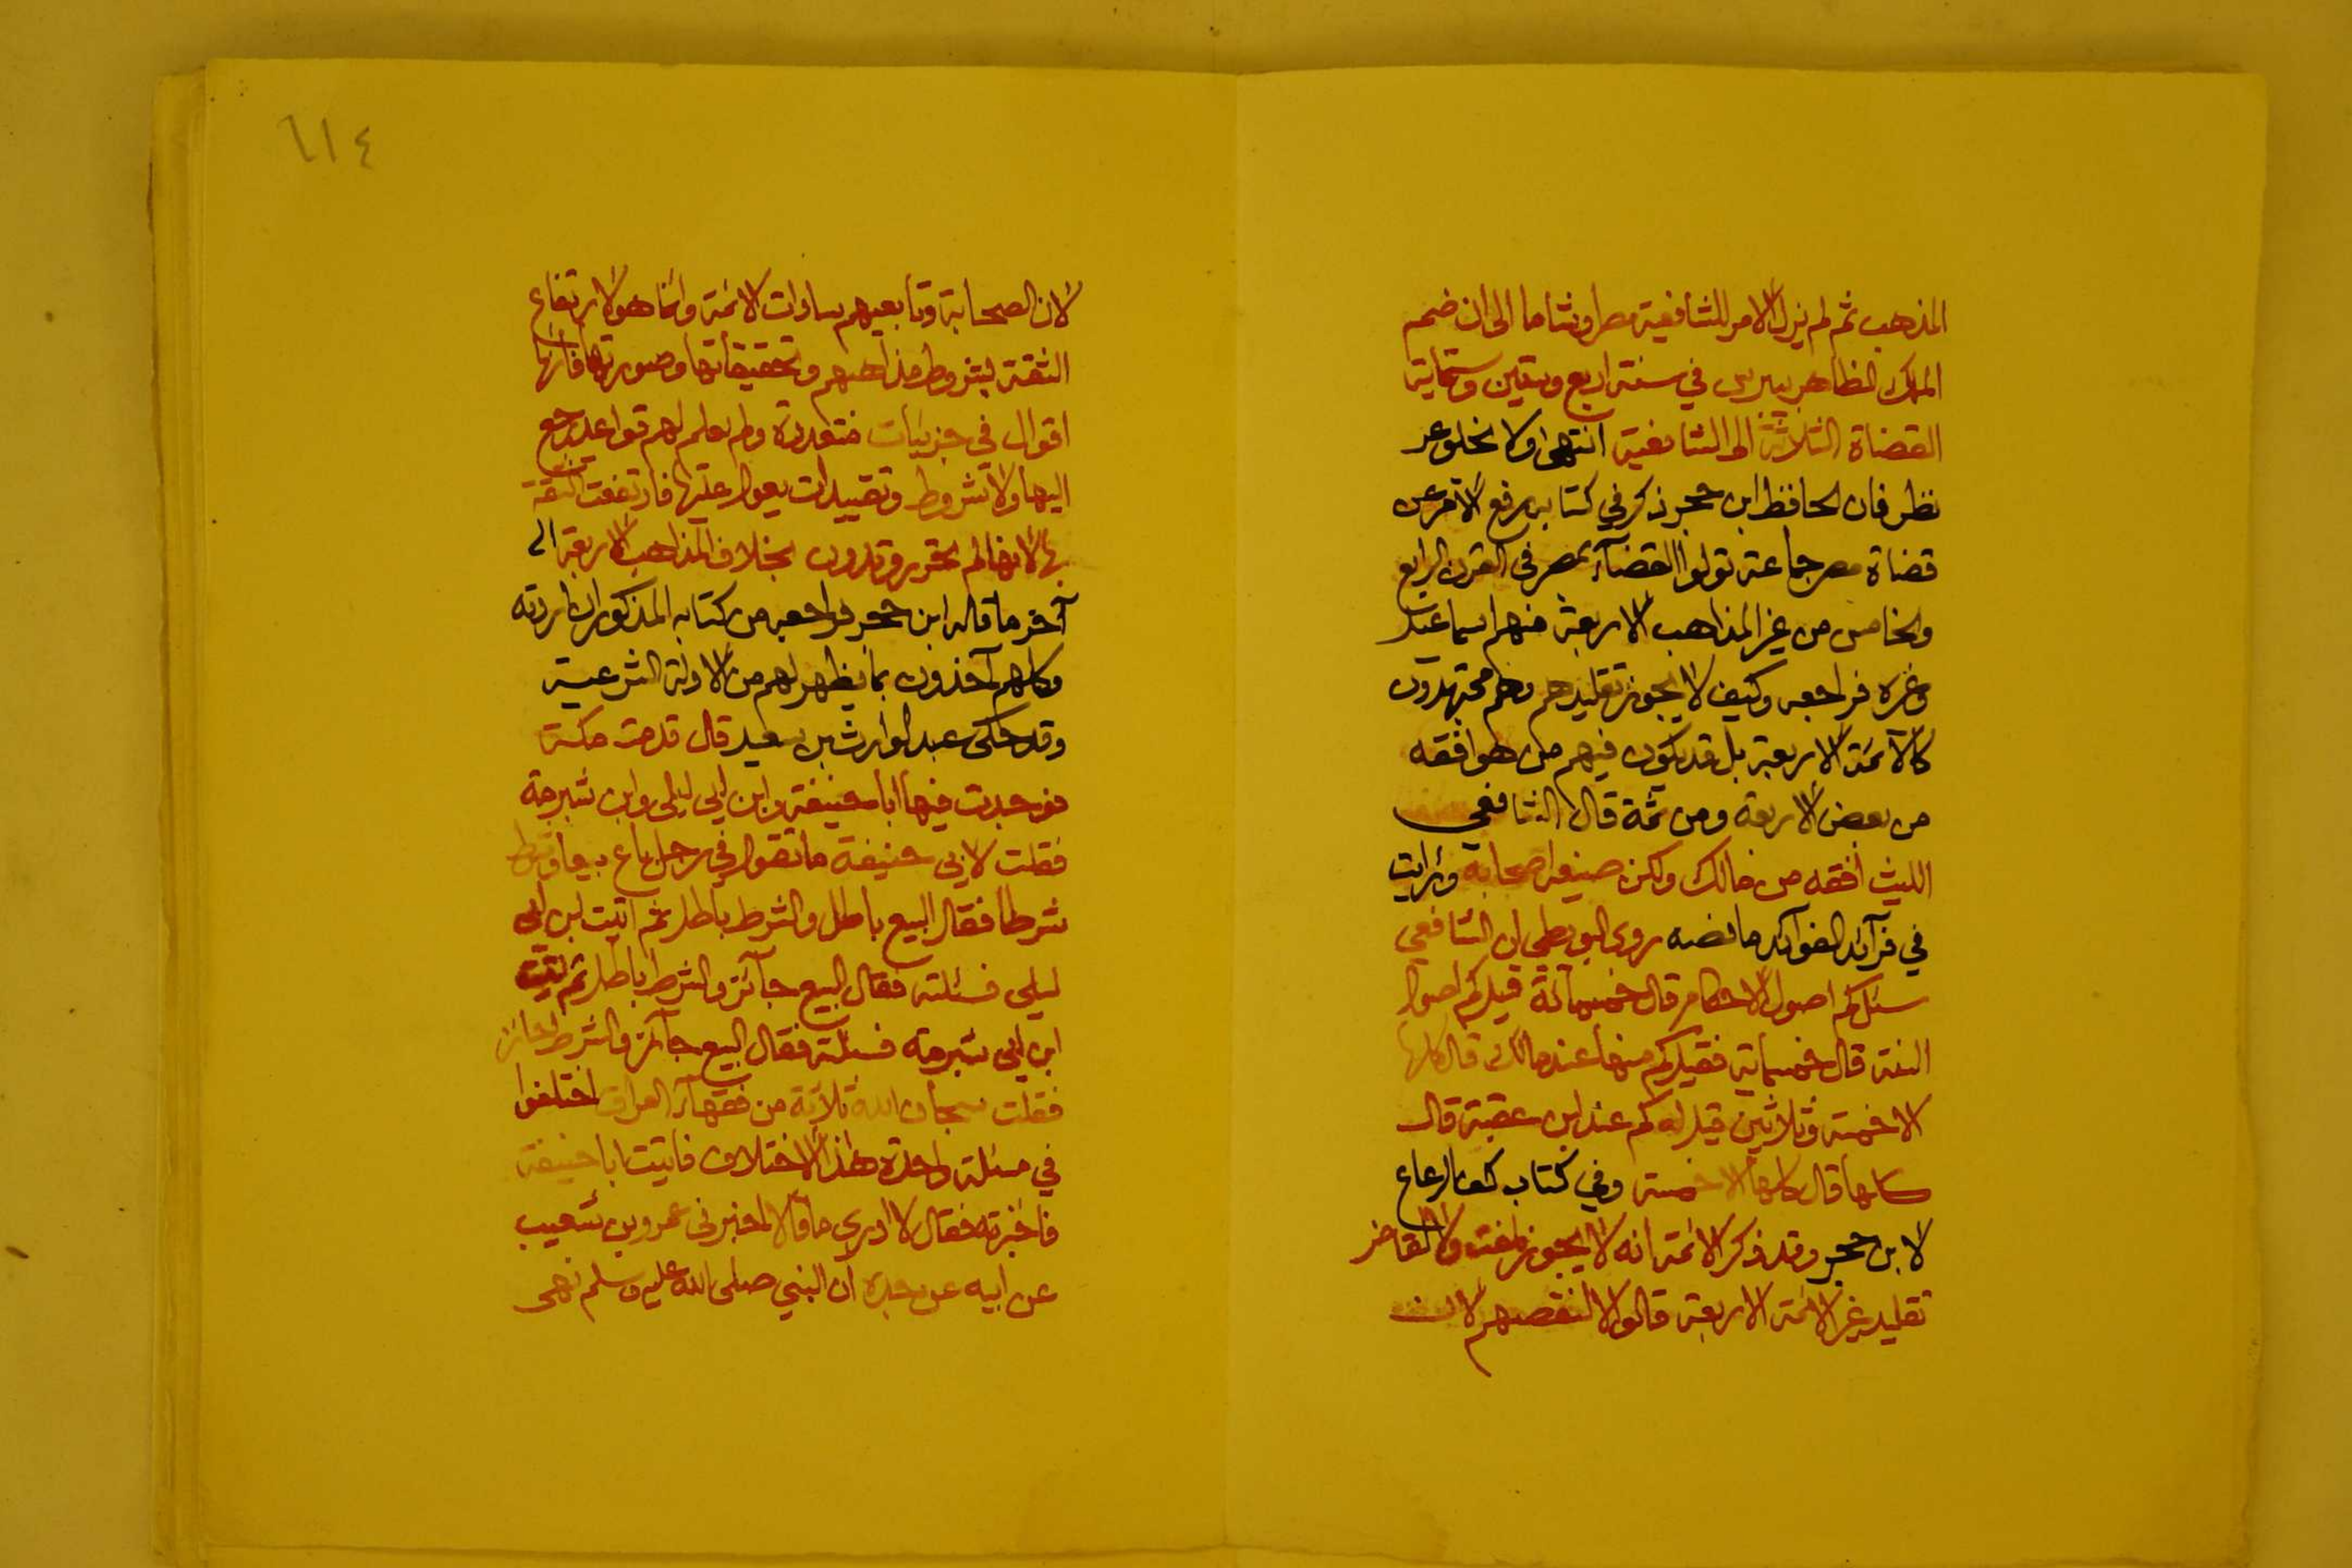 المذهب ثم لم يزل الامر للشافعية مصرا وشاما الى ان ضم
الملك الظاهر بيبرس في سنة اربع وستين وستماية
القضاة الثلاثة الى الشافعية انتهى ولا يخلو عن
نظر فان الحافظ ابن حجر ذكر في كتابه رفع الاصر عن
قضاة مصر جماعة تولوا القضآء بمصر في القرن الرابع
والخامس من غير المذاهب الاربعة منهم اسماعيل
وغيره فراجعه وكيف لا يجوز تقليدهم وهم مجتهدون
كالآئمة الاربعة بل قد يكون فيهم من هو افقه
من بعض الاربعة ومن ثمة قال الشافعي
الليث افقه من مالك ولكن ضيعه اصحابه ورايت
في فرآئد الفوآئد ما نصه روى البويطي ان الشافعي
سئل كم اصول الاحكام قال خمسمائة قيل كم اصول
السنة قال خمسماية فقيل كم منها عند مالك قال كلها
الا خمسة وثلاثين قيل له كم عند ابن عقبة قال
كلها قال كلها الا خمسة وفي كتاب كف الرعاع
لابن حجر وقد ذكر الائمة انه لا يجوز لمفت ولا لقاض
تقليد غير الائمة الاربعة قالوا لا لنقصهم لان
٦١٤
لان الصحابة وتابعيهم سادات الائمة وانما هو لارتفاع
الثقة بشروط مذاهبهم وتحقيقاتها وصورتها فانها
اقوال في جزئيات متعددة ولم يعلم لهم قواعد يرجع
اليها ولا شروط وتقييدات يعول عليها فارتفعت الثقة
بها لانها لم تحرر وتدون بخلاف المذاهب الاربعة الى
آخر ما قاله ابن حجر فراجعه من كتابه المذكور ان اردته
وكلهم آخذون بما يظهر لهم من الادلة الشرعية
وقد حكى عبد الوارث بن سعيد قال قدمت مكة
فوجدت فيها ابا حنيفة وابن ابي ليلى وابن شبرمة
فقلت لابي حنيفة ما تقول في رجل باع بيعا وشرط
شرطا فقال البيع باطل والشرط باطل ثم اتيت ابن ابي
ليلى فسئلته فقال البيع جآئز والشرط باطل ثم اتيت
ابن ابي شبرمة فسئلته فقال البيع جآئز والشرط جائز
فقلت سبحان الله ثلاثة من فقهآء العراق اختلفوا
في مسئلة واحدة هذا الاختلاف فاتيت ابا حنيفة
فاخبرته فقال لا ادري ما قالا اخبرني عمرو بن شعيب
عن ابيه عن جده ان النبي صلى الله عليه وسلم نهى